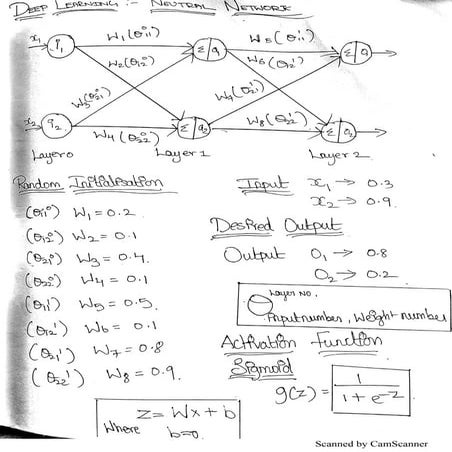 DEEP LEARNING :- NEUTRAL NETWORK
x₁ i₁ W₁(θ₁₁⁰) Σ a₁ W₅(θ₁₁¹) Σ a₁
W₂(θ₁₂⁰) W₆(θ₁₂¹)
W₃(θ₂₁⁰) W₇(θ₂₁¹)
x₂ i₂ W₄(θ₂₂⁰) Σ a₂ W₈(θ₂₂¹) Σ a₂
Layer 0 Layer 1 Layer 2
Random Initialisation
(θ₁₁⁰) W₁ = 0.2
(θ₁₂⁰) W₂ = 0.1
(θ₂₁⁰) W₃ = 0.4
(θ₂₂⁰) W₄ = 0.1
(θ₁₁¹) W₅ = 0.5
(θ₁₂¹) W₆ = 0.1
(θ₂₁¹) W₇ = 0.8
(θ₂₂¹) W₈ = 0.9
Z = Wx + b
Where b=0
Input x₁ → 0.3
x₂ → 0.9
Desired Output
Output O₁ → 0.8
O₂ → 0.2
Layer No.
Input number, Weight number
Activation Function
Sigmoid
g(z) = 1 / 1 + e⁻ᶻ
Scanned by CamScanner